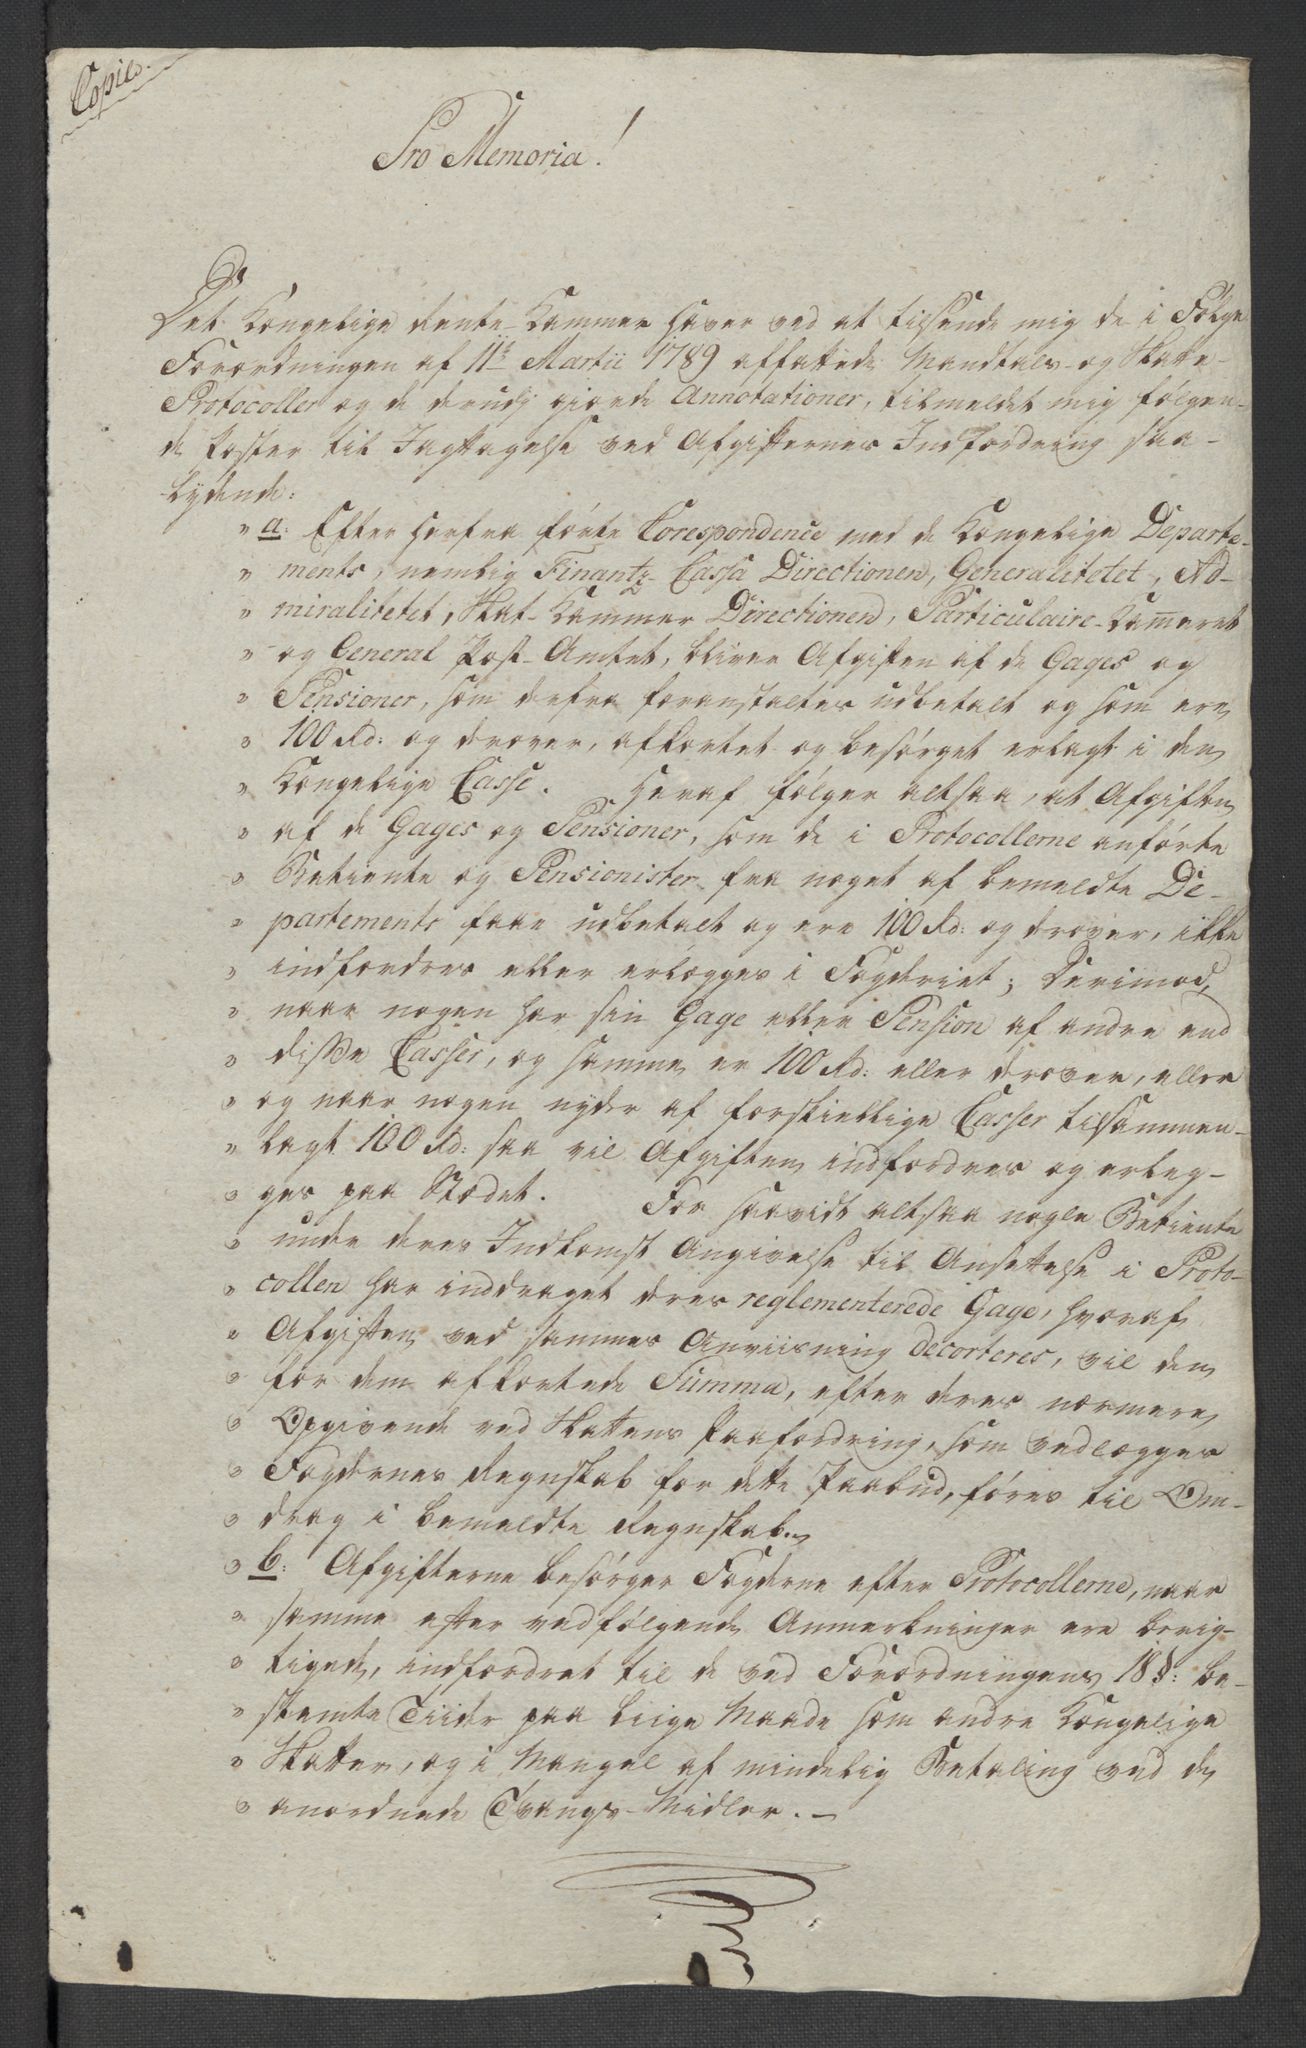 Copie.
Pro Memoria!
Det Kongelige Rente-Kammer haver ved at tilsende mig de i Følge
Forordningen af 11te Martii 1789 affattede Mandtals- og Skatte-
Protocoller og de derudj giorde Annotationer, tilmeldet mig følgen-
de Poster til Jagttagelse ved Afgifternes Indfordring saa-
lydende:
" a: Efter herfra førte Corespondence med de Kongelige Departe-
" ments, nemlig Finantz-Cassa Directionen, Generalitetet, Ad-
" miralitetet, Skat-Kammer Directionen, Particulaire-Kam̅eret
" og General Post-Amtet, bliver Afgiften af de Gages og
" Pensioner, som derfra foranstaltes udbetalt og som ere
" 100 Rd: og derover, afkortet og besørget erlagt i den
" Kongelige Casse. Heraf følger altsaa, at Afgiften
" af de Gages og Pensioner, som de i Protocollerne anførte
" Betiente og Pensionister fra noget af bemeldte De-
" partements faae udbetalt og ere 100 Rd: og derover, ikke
" indfordres eller erlægges i Fogderiet; Derimod,
" naar nogen har sin Gage eller Pension af andre end
" disse Casser, og samme er 100 Rd: eller derover, eller
" og naar nogen nyder af forskiellige Casser tilsammen-
" lagt 100 Rd: saa vil Afgiften indfordres og erleg-
" ges paa Stædet. For saavidt altsaa nogle Betiente
" under deres Indkomst Angivelse til Ansettelse i Proto-
" collen har inddraget deres reglementerede Gage, hvoraf
" Afgiften ved sammes Anviisning decorteres, vil den
" for dem afkortede Summa, efter deres nærmere
" Opgivende ved Skattens Paafordring, som vedlægges
" Fogdernes Regnskab for dette Paabud, føres til Om-
" drag i bemeldte Regnskab.
" b: Afgifterne besørger Fogderne efter Protocollerne, naar
" samme efter vedfølgende Anmerkninger ere berig-
" tigede, indfordret til de ved Forordningens 18 §: be-
" stemte Tiider paa liige Maade som andre Kongelige
" Skatter, og i Mangel af mindelig Betaling ved de
" anordnede Tvangs-Midler. –